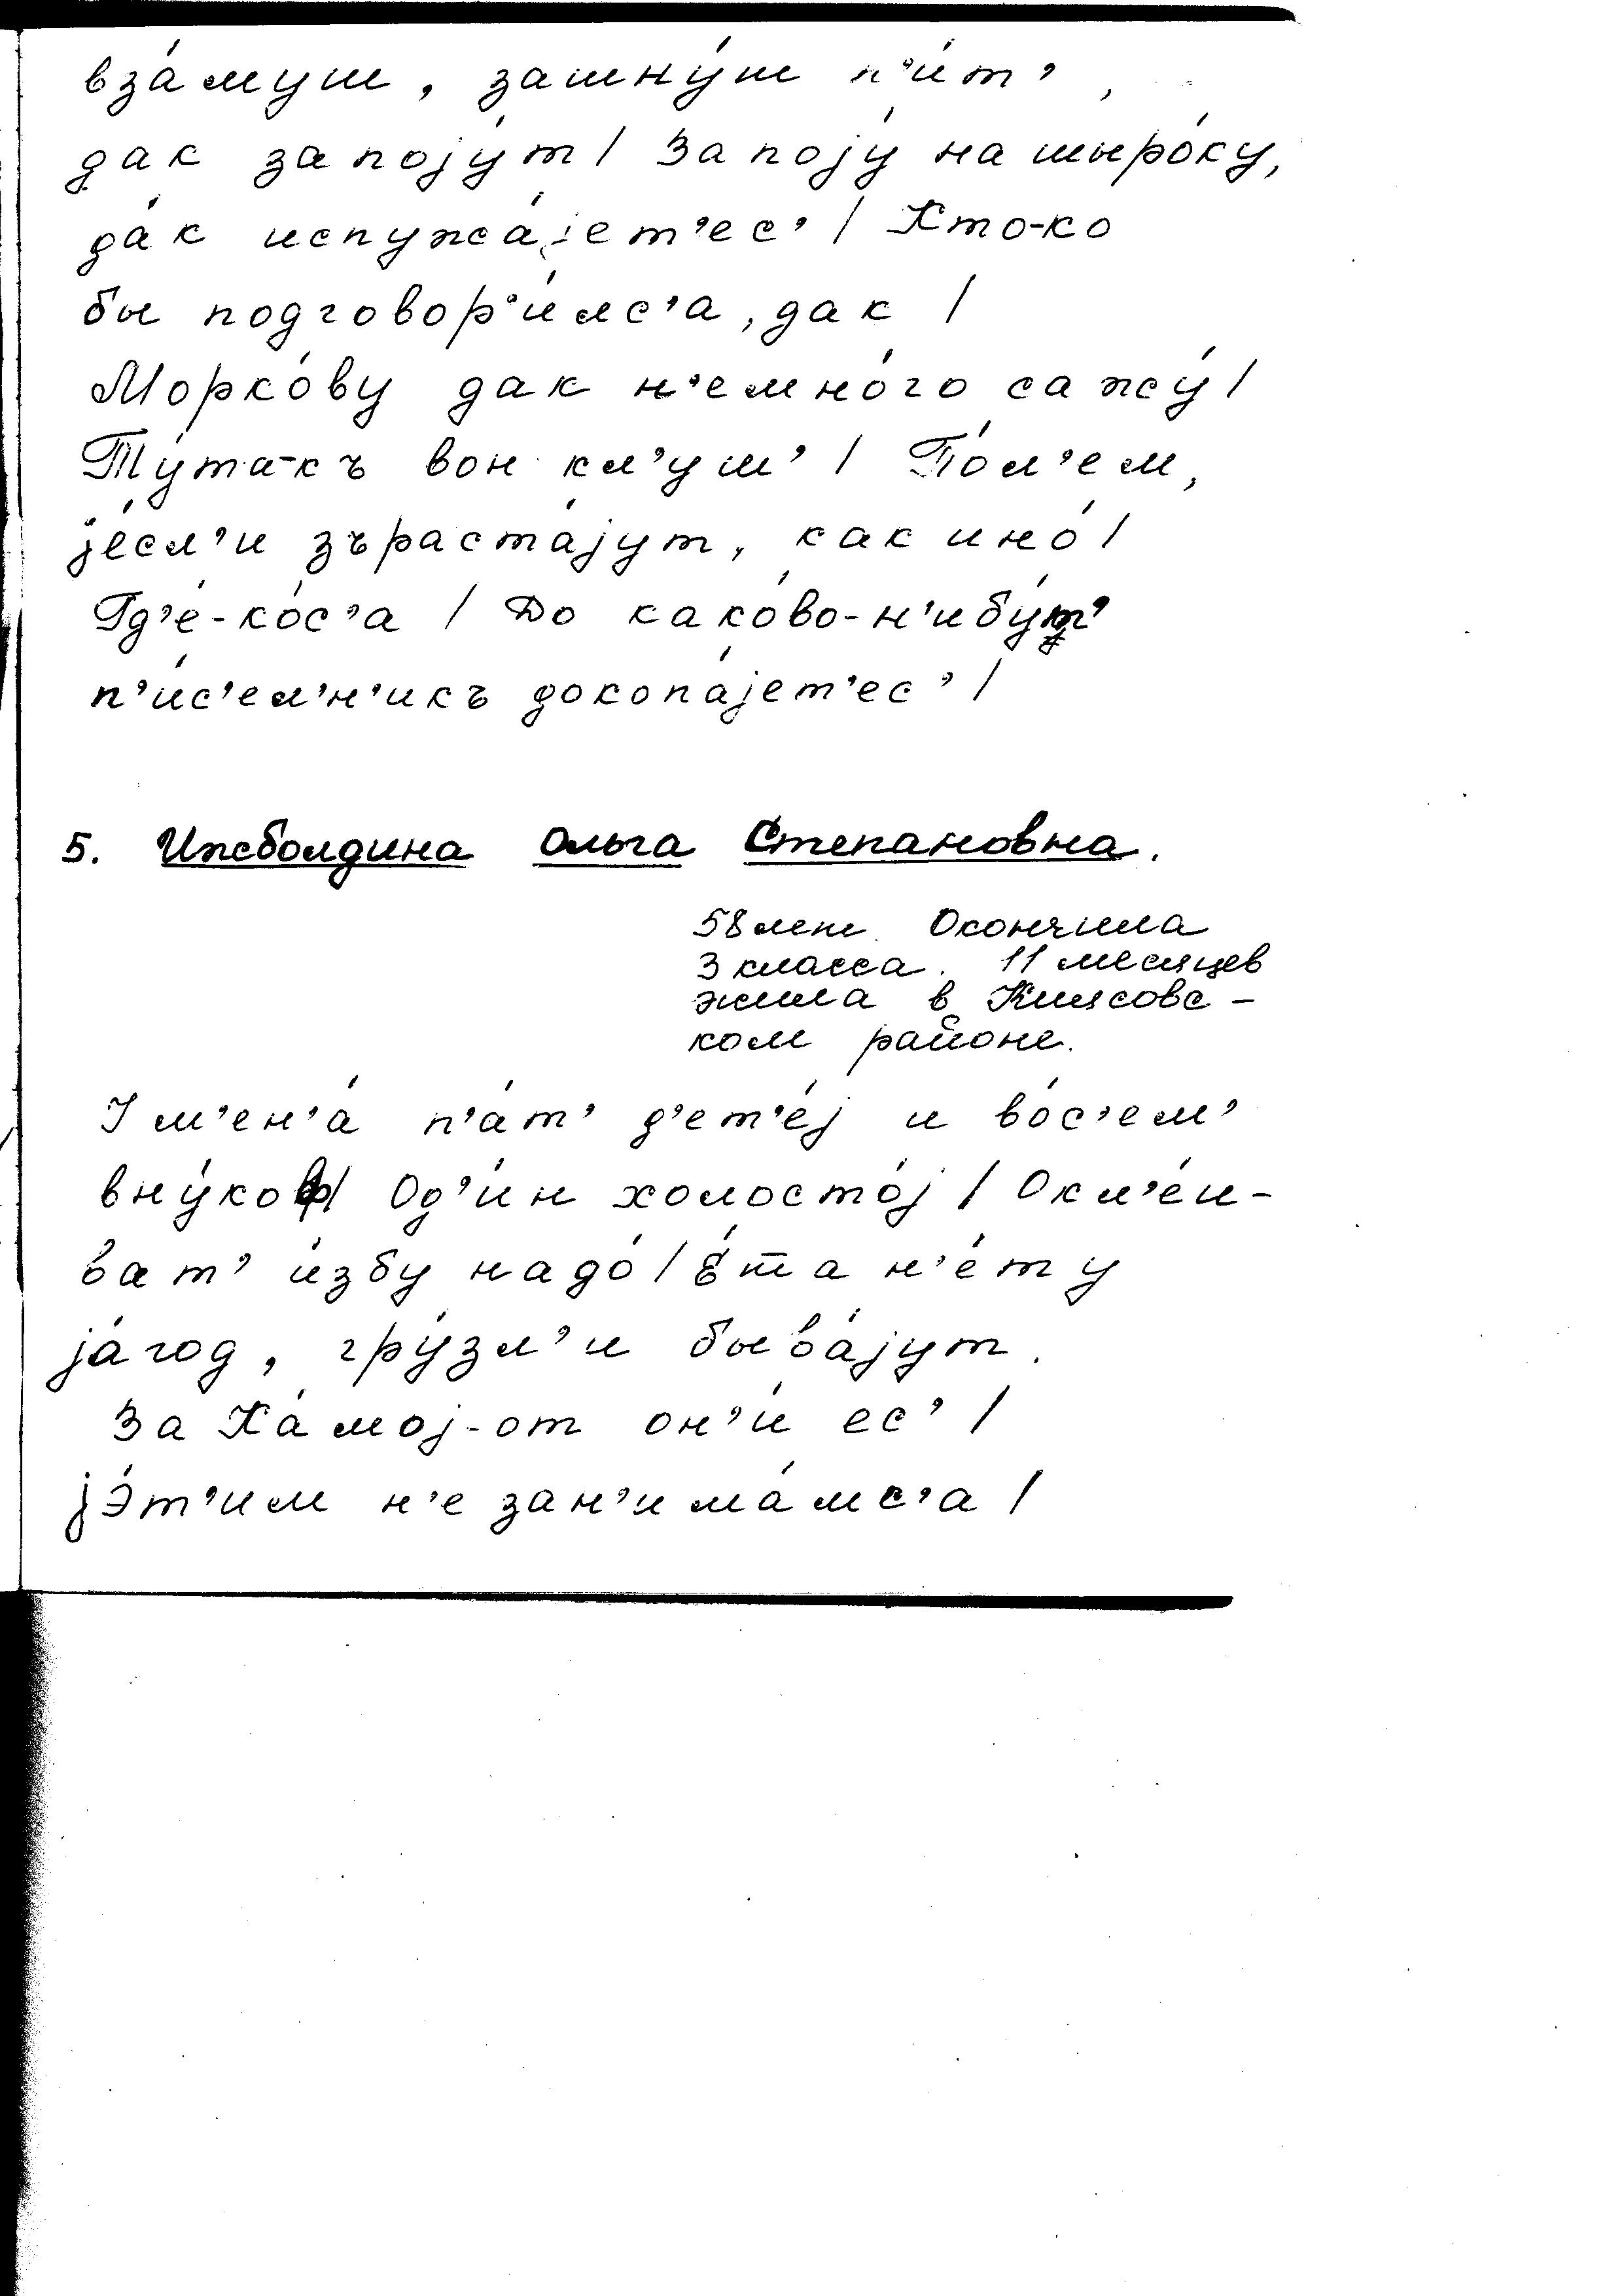 вза́муш, зашну́т п'и́т',
дак запоjу́т / Запоjу́ на шыро́ку,
да́к испужа́jет'ес' / Хто-ко
бы подговор'и́лс'а, дак /
Морко́ву дак н'емно́го сажу́ /
Ту́та-къ вон кл'уш' / По́л'ем,
jе́сл'и зъраста́jут, как ино́ /
Гд'е́-ко́с'а / До како́во-н'ибу́т'
п'и́с'ел'н'икъ докопа́jет'ес' /
5. Ижболдина Ольга Степановна.
58 лет. Окончила
3 класса. 11 месяцев
жила в Киясовс-
ком районе.
У м'ен'а́ п'а́т' д'ет'е́j и во́с'ем'
вну́коф / Од'и́н холосто́j / Окл'е́и-
ват' и́збу надо́ / э́та н'е́ту
jа́год, гру́зл'и быва́jут.
За Ка́мой-от он'и́ ес' /
jэ́т'им н'е зан'има́мс'а /